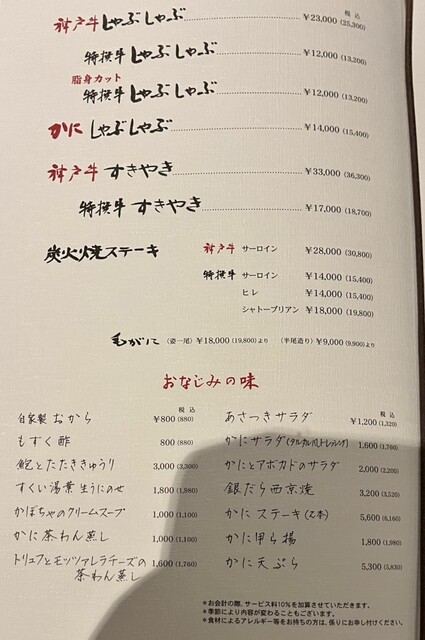 税込
神戸牛 しゃぶしゃぶ ¥23,000 (25,300)
特撰牛 しゃぶしゃぶ ¥12,000 (13,200)
脂身カット
特撰牛 しゃぶしゃぶ ¥12,000 (13,200)
かに しゃぶしゃぶ ¥14,000 (15,400)
神戸牛 すきやき ¥33,000 (36,300)
特撰牛 すきやき ¥17,000 (18,700)
炭火焼ステーキ 神戸牛 サーロイン ¥28,000 (30,800)
特撰牛 サーロイン ¥14,000 (15,400)
ヒレ ¥14,000 (15,400)
シャトーブリアン ¥18,000 (19,800)
毛がに (姿一尾) ¥18,000 (19,800)より (半尾造り) ¥9,000 (9,900)より
おなじみの味
税込
自家製 おから ¥800 (880)
もずく酢 800 (880)
鮑とたたききゅうり 3,000 (3,300)
すくい湯葉 生うにのせ 1,800 (1,980)
かぼちゃのクリームスープ 1,000 (1,100)
かに茶わん蒸し 1,000 (1,100)
トリュフとモッツァレラチーズの
茶わん蒸し 1,600 (1,760)
税込
あさつきサラダ ¥1,200 (1,320)
かにサラダ 1,600 (1,760)
かにとアボカドのサラダ 2,000 (2,200)
銀だら西京焼 3,200 (3,520)
かに ステーキ (2本) 5,600 (6,160)
かに 甲ら揚 1,800 (1,980)
かに 天ぷら 5,300 (5,830)
*お会計の際、サービス料10%を加算させていただきます。
*季節により内容が変わることもございます。
*食材によるアレルギー等をお持ちの方は、係りにお申し付けください。